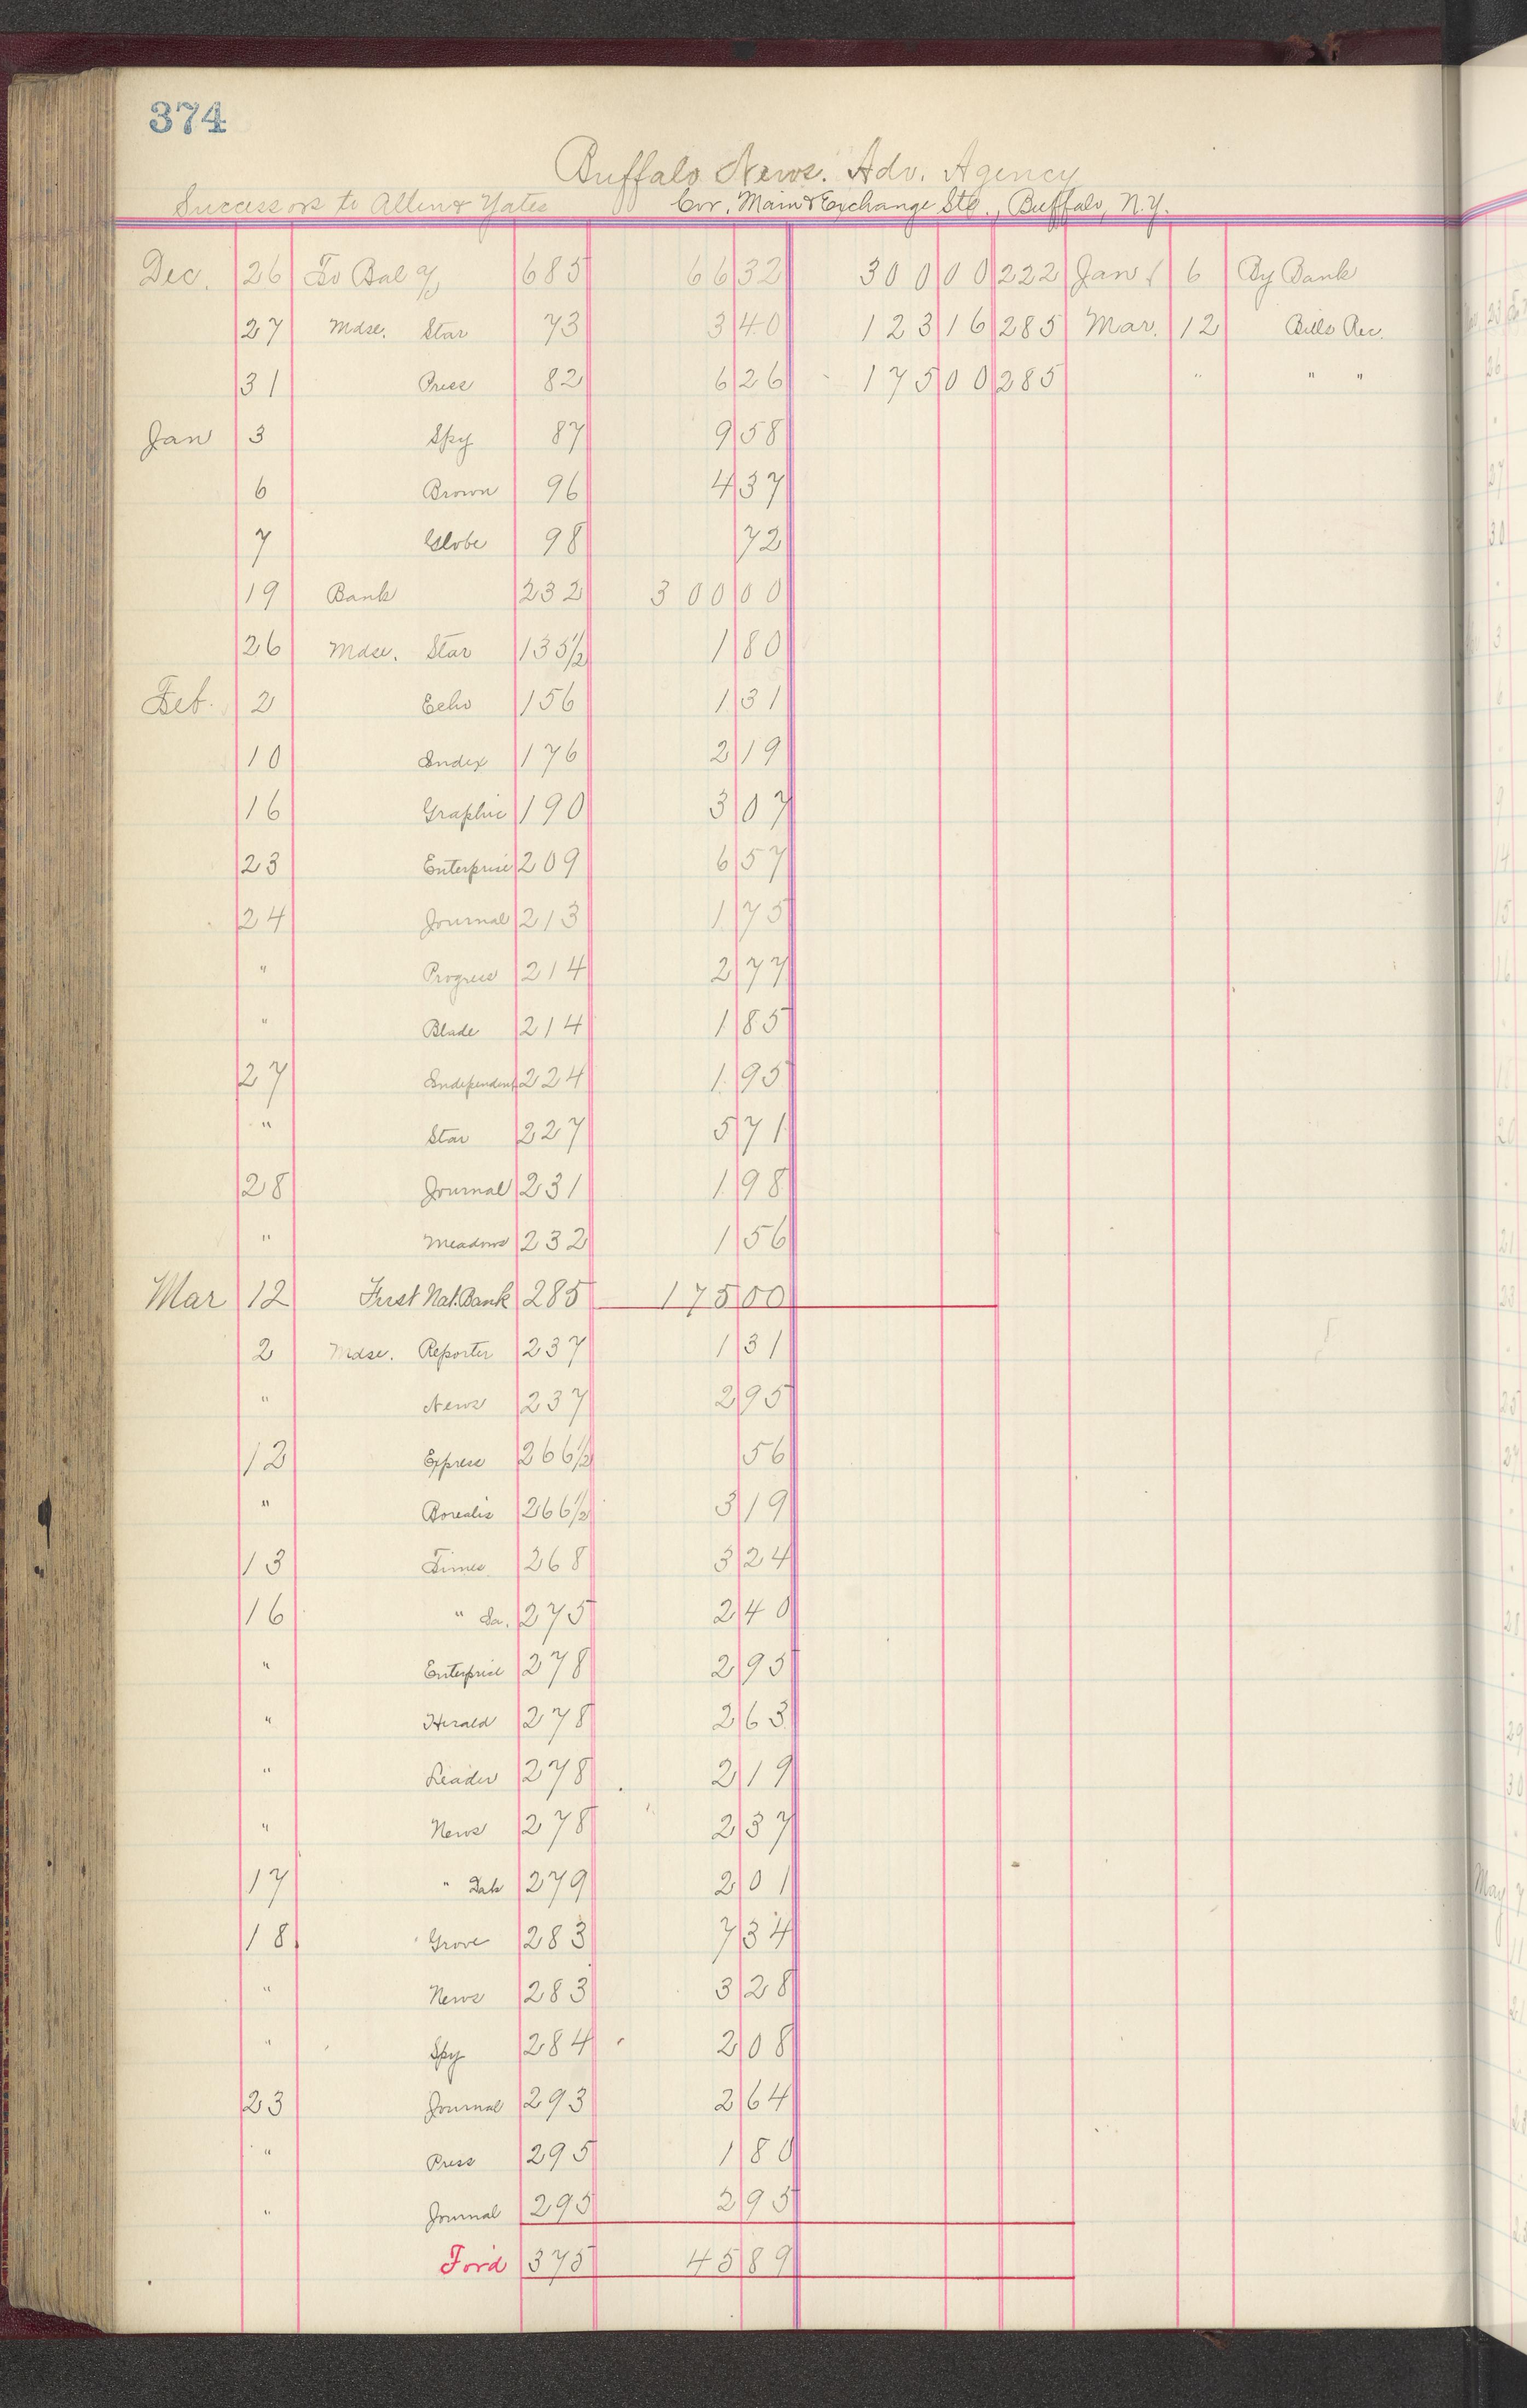 374
Buffalo News. Adv. Agency
Successors to Allen & Yates Cor. Main & Exchange Sts., Buffalo, N.Y.
Dec. 26 To Bal 685 66 32 300 00 222 Jan 6 By Bank
27 Mdse. Star 73 3 40 123 16 285 Mar. 12 Bills Rec.
31 Press 82 6 26 175 00 285 " " "
Jan 3 Spy 87 9 58
6 Brown 96 4 37
7 Globe 98 72
19 Bank 232 300 00
26 Mdse. Star 135½ 1 80
Feb. 2 Echo 156 1 31
10 Index 176 2 19
16 Graphic 190 3 07
23 Enterprise 209 6 57
24 Journal 213 1 75
" Progress 214 2 77
" Blade 214 1 85
27 Independent 224 1 95
" Star 227 5 71
28 Journal 231 1 98
" Meadows 232 1 56
Mar 12 First Nat. Bank 285 175 00
2 Mdse. Reporter 237 1 31
" News 237 2 95
12 Express 266½ 56
" Borealis 266½ 3 19
13 Times 268 3 24
16 " Ia. 275 2 40
" Enterprise 278 2 95
" Herald 278 2 63
" Leader 278 2 19
" News 278 2 37
17 " Dak 279 2 01
18 Grove 283 7 34
" News 283 3 28
" Spy 284 2 08
23 Journal 293 2 64
" Press 295 1 80
" Journal 295 2 95
For'd 375 45 89